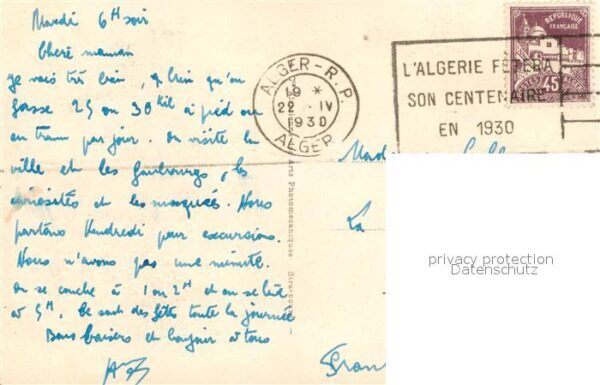 Mardi 6H soir
Chère maman
Je vais très bien, & bien qu'on
fasse 25 ou 30 kil à pied ou
en tram par jour. On visite la
ville et les faubourgs, les
curiosités et les mosquées. Nous
partons Vendredi pour excursions.
Nous n'avons pas une minute.
On se couche à 1 ou 2H et on se lève
à 5H. Ce sont des fêtes toute la journée
Bons baisers et bonjour à tous
ALGER-R.P.
19 *
22 - IV
1930
ALGER
L'ALGERIE FÊTERA
SON CENTENAIRE
EN 1930
RÉPUBLIQUE
FRANÇAISE
45
Arts Photomécaniques
Mad
La
privacy protection
Datenschutz